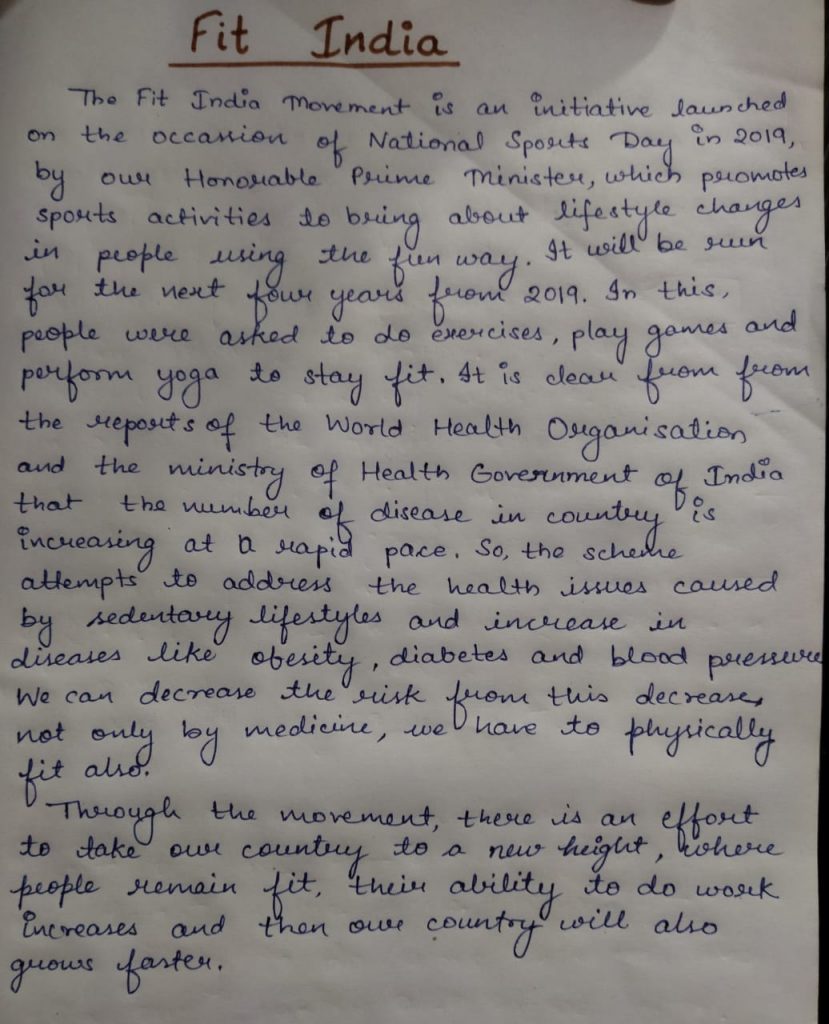 Fit India
The Fit India Movement is an initiative launched
on the occassion of National Sports Day in 2019,
by our Honorable Prime Minister, which promotes
sports activities to bring about lifestyle changes
in people using the fun way. It will be run
for the next four years from 2019. In this,
people were asked to do exercises, play games and
perform yoga to stay fit. It is clear from from
the reports of the World Health Organisation
and the ministry of Health Government of India
that the number of disease in country is
increasing at a rapid pace. So, the scheme
attempts to address the health issues caused
by sedentary lifestyles and increase in
diseases like obesity, diabetes and blood pressure
We can decrease the risk from this decrease,
not only by medicine, we have to physically
fit also.
Through the movement, there is an effort
to take our country to a new height, where
people remain fit, their ability to do work
increases and then our country will also
grows faster.